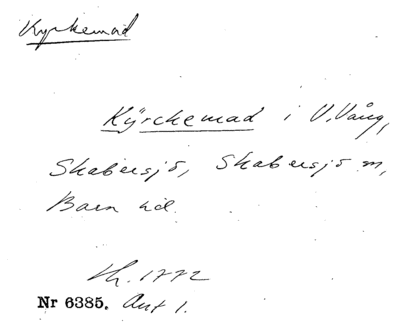 Kyrkemad
Kÿrckemad i V. Vång,
Skabersjö, Skabersjö sn,
Bara hd.
Lh. 1772
Nr 6385. Akt 1.